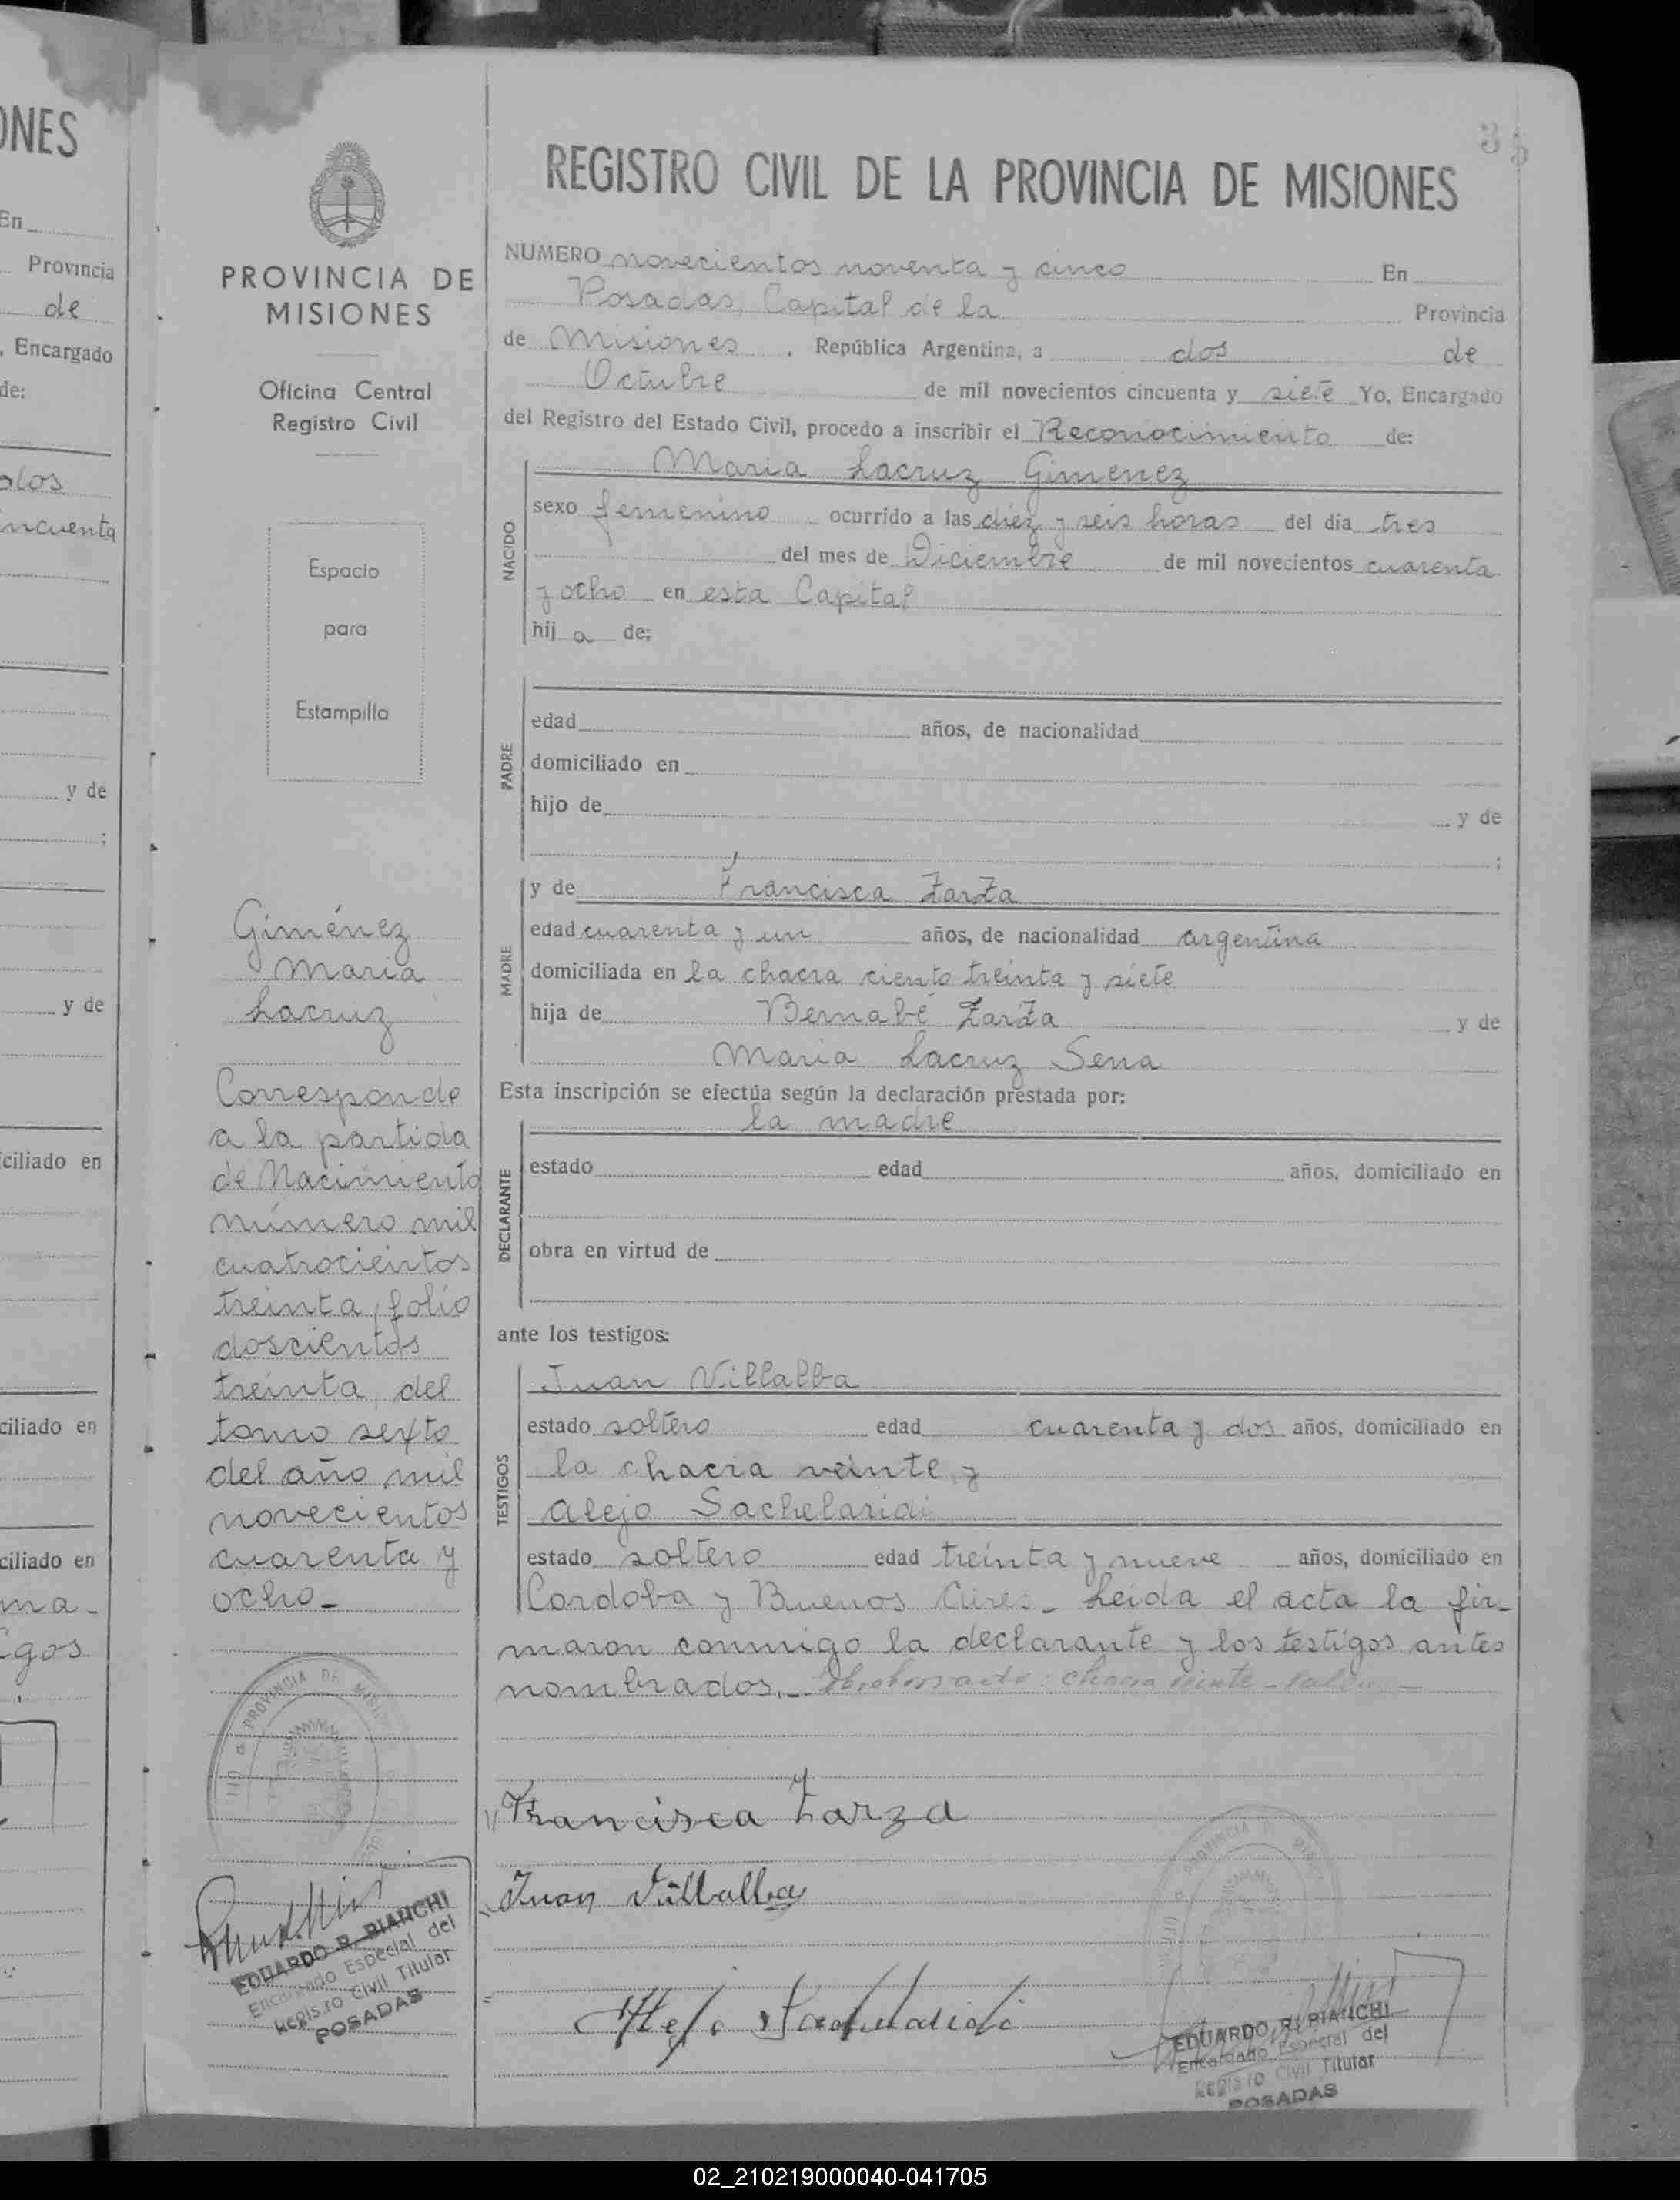 ONES
En
Provincia
de
, Encargado
de:
alos
incuenta
y de
;
y de
ciliado en
ciliado en
ciliado en
ma-
igos
PROVINCIA DE
MISIONES
Oficina Central
Registro Civil
Espacio
para
Estampilla
Giménez
Maria
Lacruz
Corresponde
a la partida
de Nacimiento
número mil
cuatrocientos
treinta, folio
doscientos
treinta, del
tomo sexto
del año mil
novecientos
cuarenta y
ocho-
PROVINCIA DE
EDUARDO R. BIANCHI
Encargado Especial del
Registro Civil Titular
POSADAS
35
REGISTRO CIVIL DE LA PROVINCIA DE MISIONES
NUMERO novecientos noventa y cinco En
Posadas, Capital de la Provincia
de Misiones, República Argentina, a dos de
Octubre de mil novecientos cincuenta y siete Yo, Encargado
del Registro del Estado Civil, procedo a inscribir el Reconocimiento de:
NACIDO
Maria Lacruz Gimenez
sexo femenino ocurrido a las diez y seis horas del día tres
del mes de Diciembre de mil novecientos cuarenta
y ocho en esta Capital
hij a de:
PADRE
edad años, de nacionalidad
domiciliado en
hijo de y de
;
MADRE
y de Francisca Zarza
edad cuarenta y un años, de nacionalidad argentina
domiciliada en la chacra ciento treinta y siete
hija de Bernabé Zarza y de
Maria Lacruz Sena
Esta inscripción se efectúa según la declaración prestada por:
la madre
DECLARANTE
estado edad años, domiciliado en
obra en virtud de
ante los testigos:
TESTIGOS
Juan Villalba
estado soltero edad cuarenta y dos años, domiciliado en
la chacra veinte y
Alejo Sachelaridi
estado soltero edad treinta y nueve años, domiciliado en
Cordoba y Buenos Aires.- Leida el acta la fir-
maron conmigo la declarante y los testigos antes
nombrados.- Sobreborrado: chacra veinte - vale -
Francisca Zarza
Juan Villalba
Alejo Sachelaridi
PROVINCIA DE
EDUARDO R. BIANCHI
Encargado Especial del
Registro Civil Titular
POSADAS
02_210219000040-041705